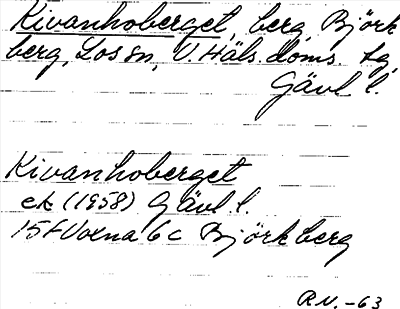 Kivanhoberget, berg, Björk
berg, Los sn, V. Häls. doms. tg,
Gävl l.
Kivanhoberget
ek (1958) Gävl l.
15f Voxna 6c Björkberg
R.N. -63